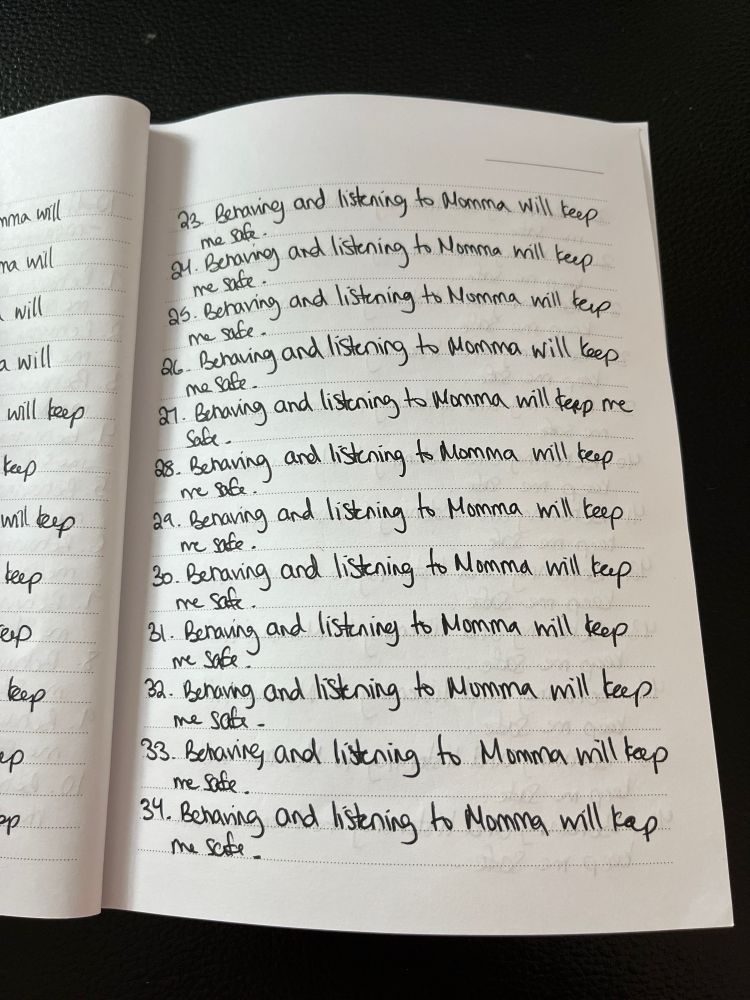 mma will
ma will
will
a will
will keep
keep
will keep
keep
keep
keep
ep
ep
23. Behaving and listening to Momma will keep
me safe.
24. Behaving and listening to Momma will keep
me safe.
25. Behaving and listening to Momma will keep
me safe.
26. Behaving and listening to Momma will keep
me safe.
27. Behaving and listening to Momma will keep me
safe.
28. Behaving and listening to Momma will keep
me safe.
29. Behaving and listening to Momma will keep
me safe.
30. Behaving and listening to Momma will keep
me safe.
31. Behaving and listening to Momma will keep
me safe.
32. Behaving and listening to Momma will keep
me safe.
33. Behaving and listening to Momma will keep
me safe.
34. Behaving and listening to Momma will keep
me safe.